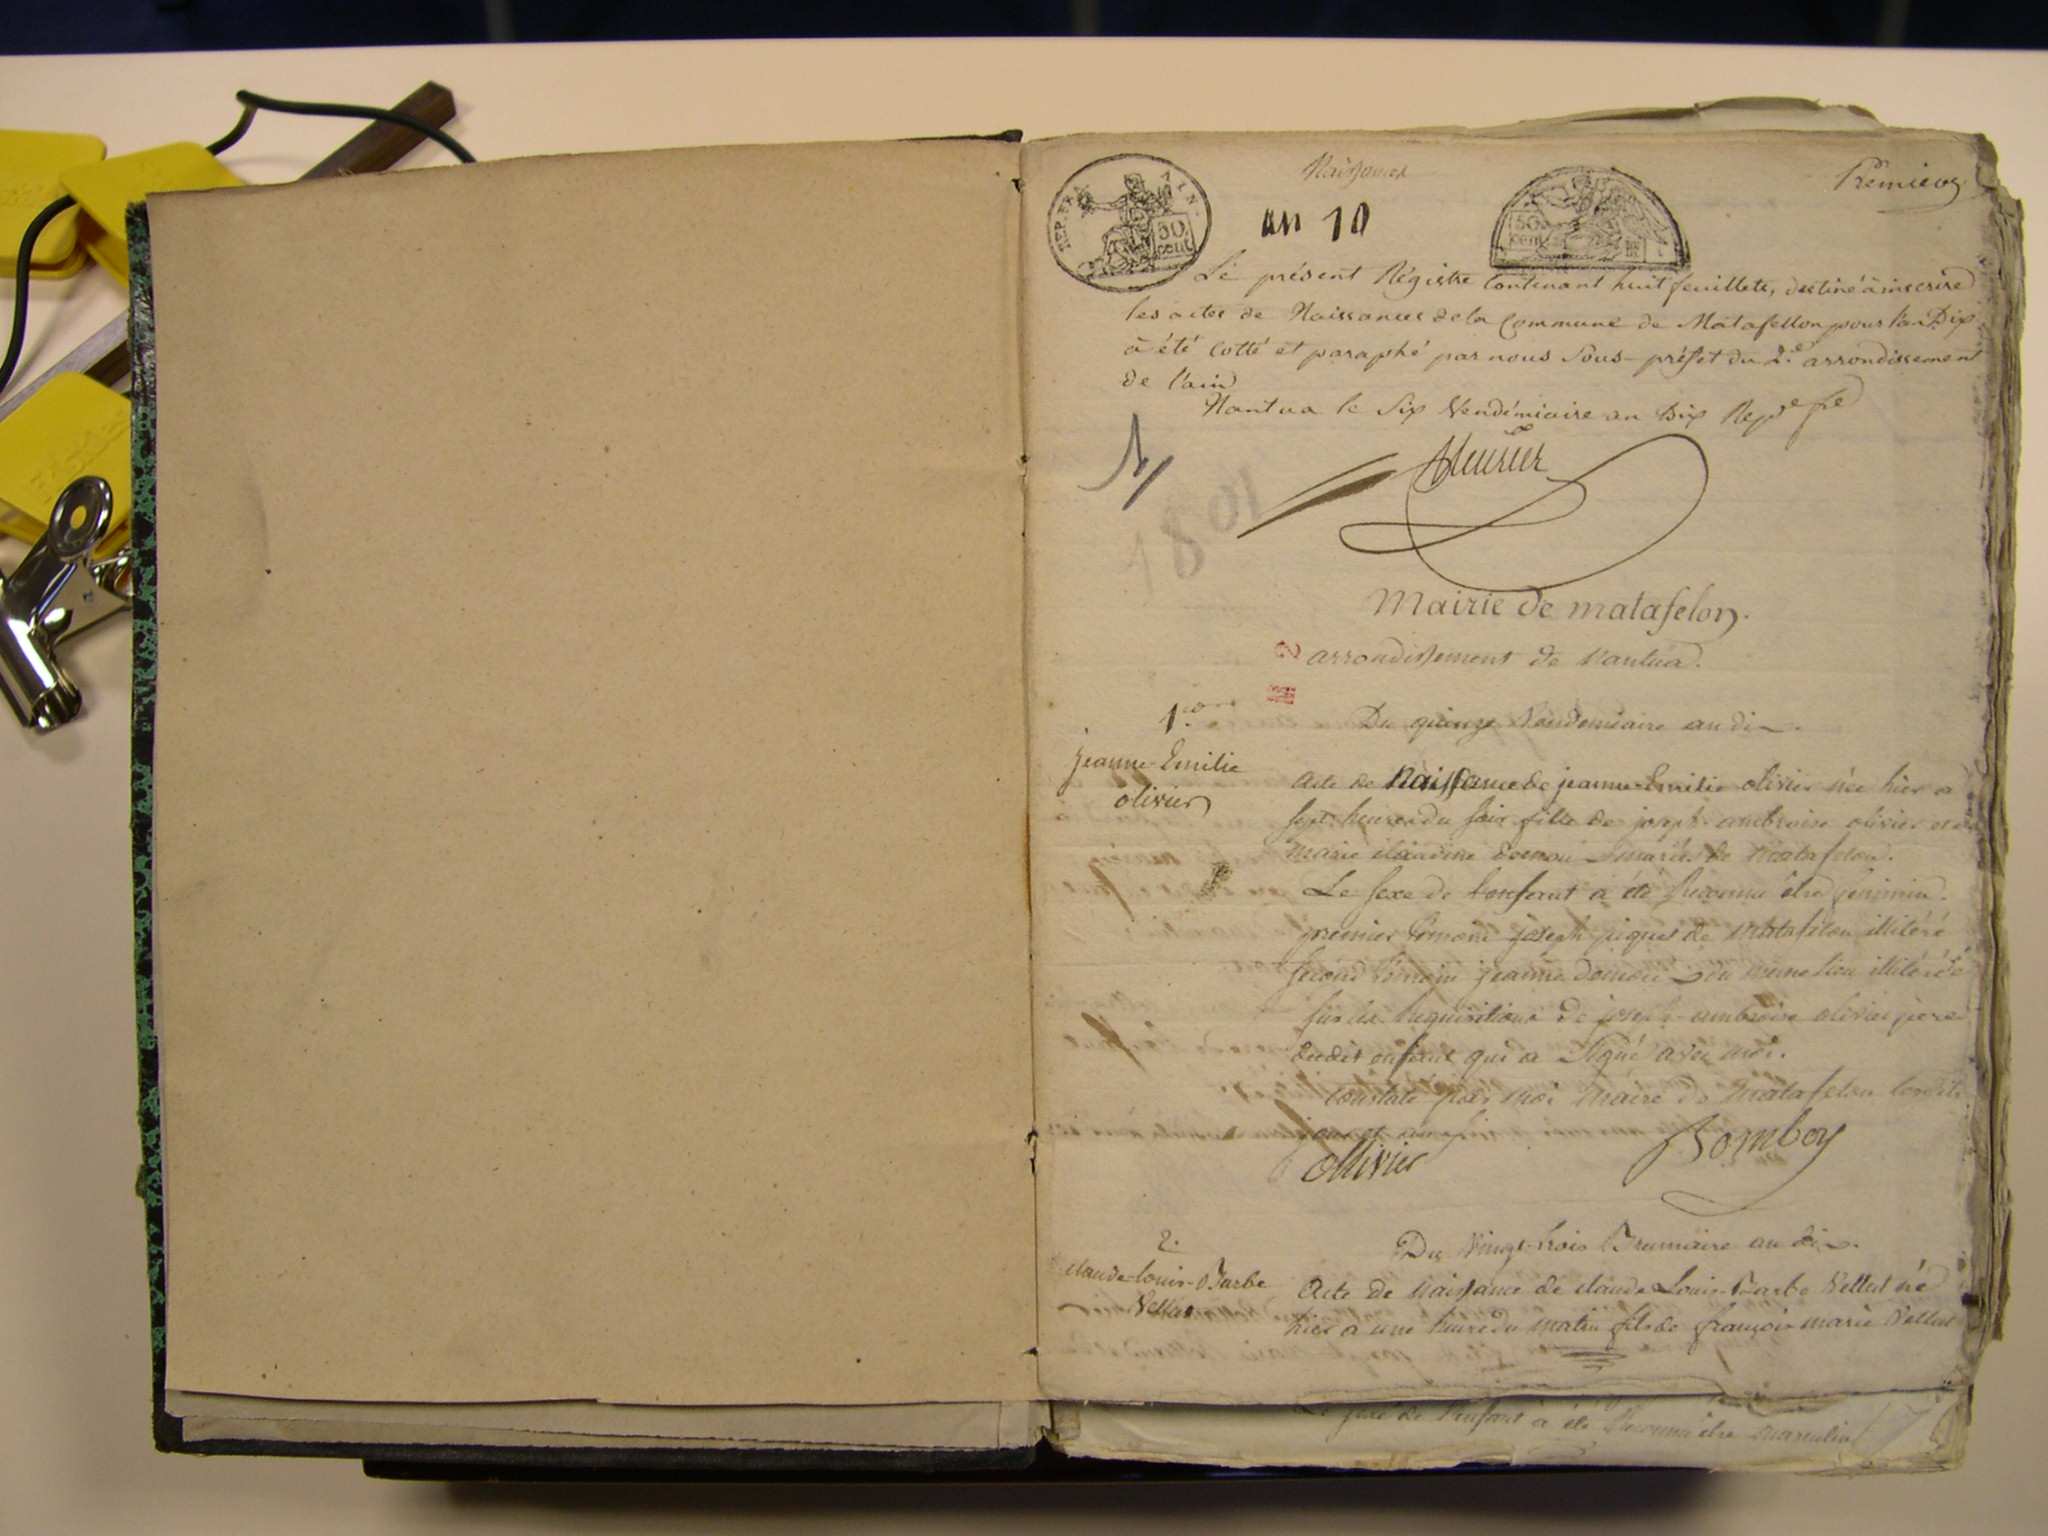 Naissances
Premier
REP. FRA. AIN.
50 cent
50 cen
an 10
Le présent Régistre Contenant huit feuillets, destiné à inscrire
les actes de Naissances de la Commune de Matafellon pour l'an Dix
à été cotté et paraphé par nous Sous-préfet du 2.e arrondissement
de l'ain
Nantua le Six Vendémiaire an Dix Repe fse
1801
Mairie de matafelon.
arrondissement de Nantua.
Du quinze Vendemiaire an dix.
jeanne-Emilie
olivier
acte de Naissance de jeanne-Emilie olivier née hier a
sept heures du soir fille de joseph-ambroise olivier et de
marie claudine mariés de Matafelon.
Le sexe de lenfant à été Reconnu être feminin.
premier témoin joseph de Matafelon illitéré
second témoin jeanne du même lieu illitérée
sur la Requisition de joseph-ambroise olivier père
dudit enfant qui a signé avec moi.
Constaté par moi Maire de Matafelon lesdits
jour et an
ollivier Bomboy
2.
Du vingt-trois Brumaire an dix.
claude-louis-Barbe
Vellut
Acte de Naissance de claude Louis-Barbe Vellut né
hier a une heure du matin fils de françois marie Vellut
Le sexe de l'enfant à été Reconnu être masculin